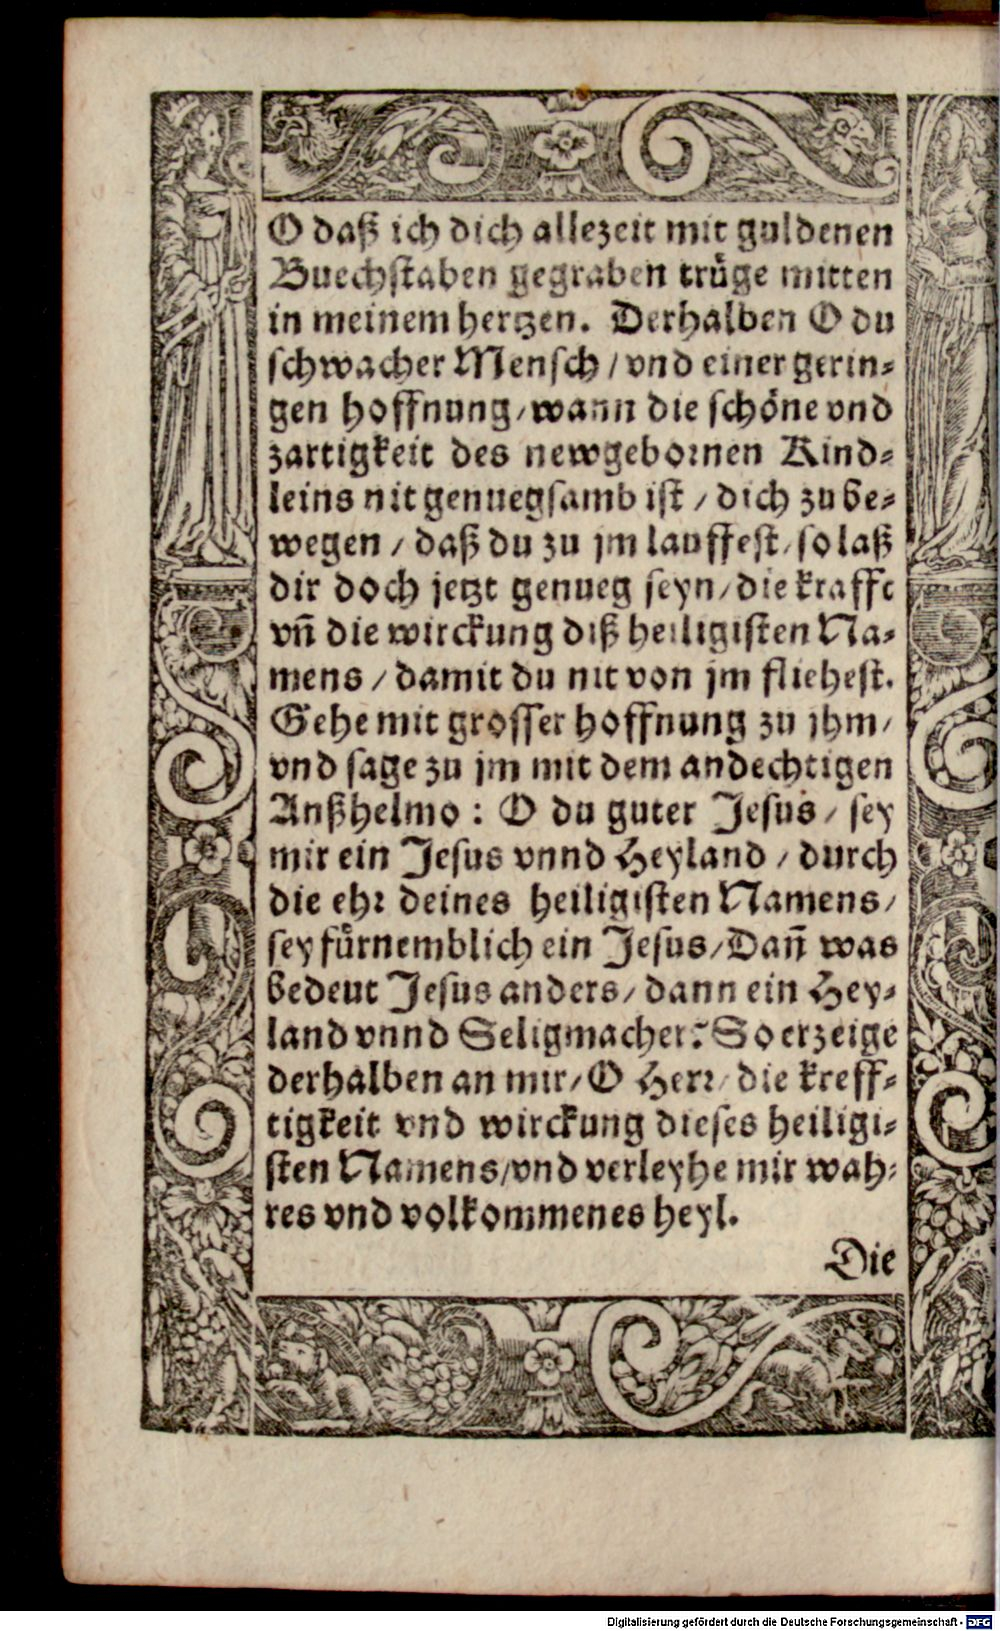 O daß ich dich allezeit mit guldenen
Buechstaben gegraben truͤge mitten
in meinem hertzen. Derhalben O du
schwacher Mensch / vnd einer gerin⸗
gen hoffnung / wann die schoͤne vnd
zartigkeit des newgebornen Kind⸗
leins nit genuegsamb ist / dich zu be⸗
wegen / daß du zu jm lauffest / so laß
dir doch jetzt genueg seyn / die krafft
vñ die wirckung diß heiligisten Na⸗
mens / damit du nit von jm fliehest.
Gehe mit grosser hoffnung zu jhm /
vnd sage zu jm mit dem andechtigen
Anßhelmo : O du guter Jesus / sey
mir ein Jesus vnnd Heyland / durch
die ehr deines heiligisten Namens /
sey fuͤrnemblich ein Jesus / Dañ was
bedeut Jesus anders / dann ein Hey⸗
land vnnd Seligmacher? So erzeige
derhalben an mir / O Herr / die kreff⸗
tigkeit vnd wirckung dieses heiligi⸗
sten Namens / vnd verleyhe mir wah⸗
res vnd volkommenes heyl.
Die
Digitalisierung gefördert durch die Deutsche Forschungsgemeinschaft - DFG